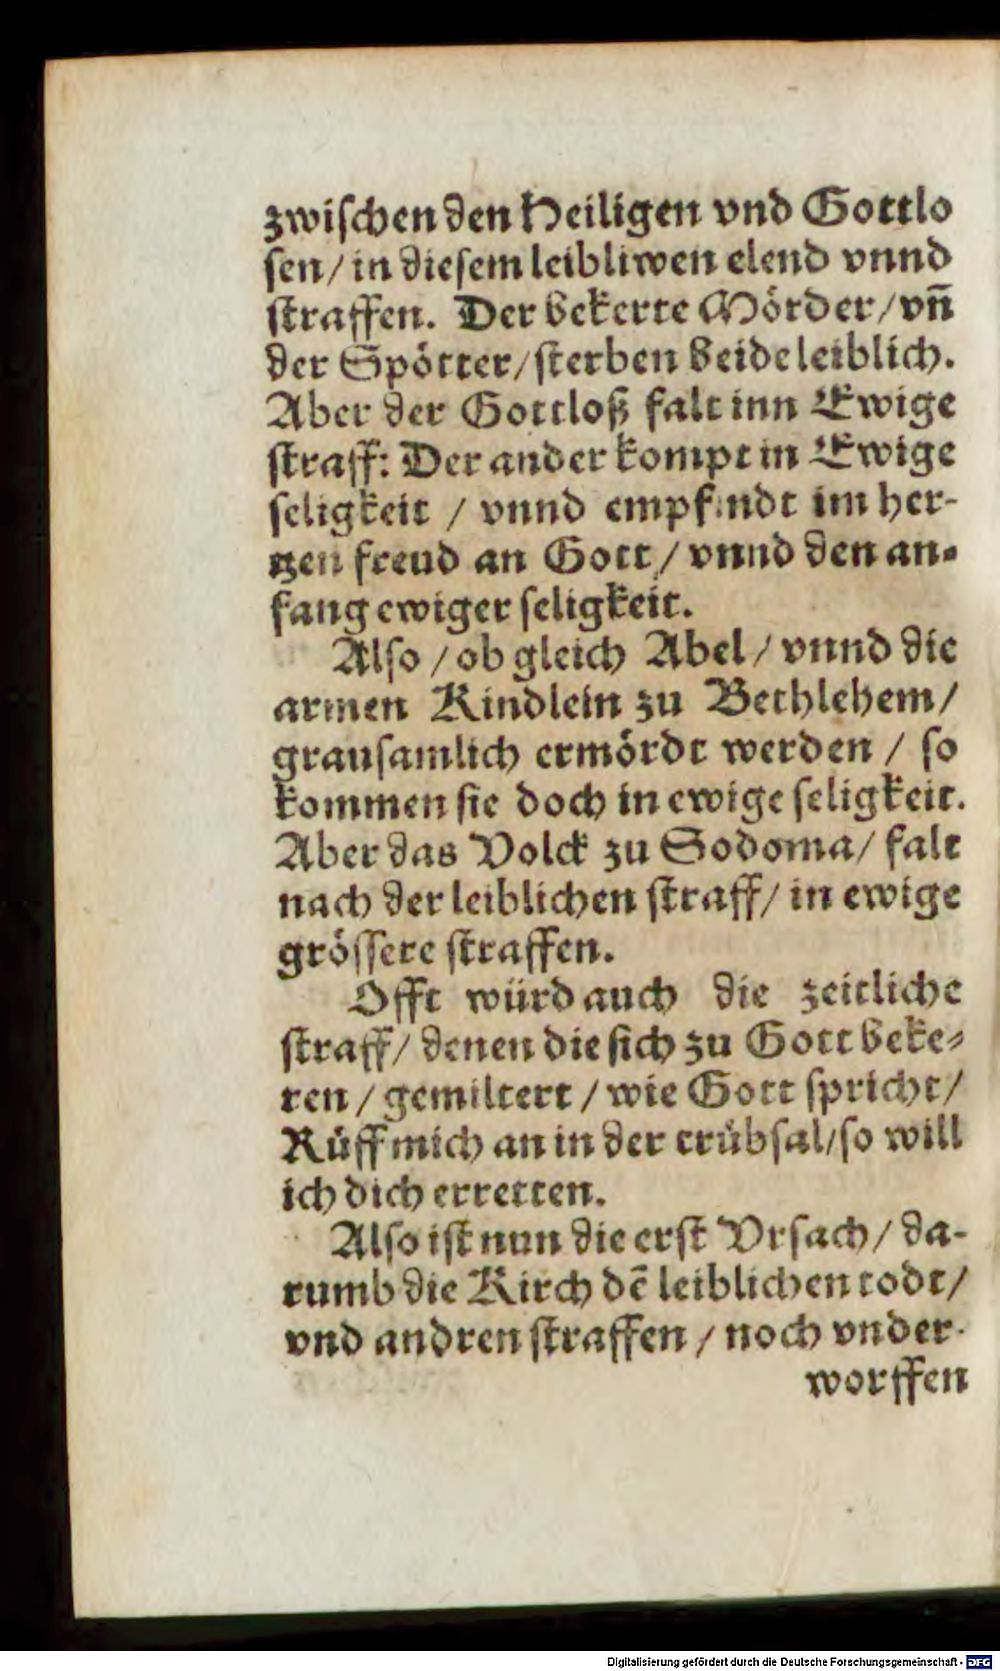 zwiſchen den Heiligen vnd Gottlo
ſen/ in dieſem leibliwen elend vnnd
ſtraffen. Der bekerte Mörder/ vn̄
der Spötter/ ſterben beide leiblich.
Aber der Gottloß falt inn Ewige
ſtraff: Der ander kompt in Ewige
ſeligkeit / vnnd empfindt im her-
tzen freud an Gott/ vnnd den an-
fang ewiger ſeligkeit.
Alſo / ob gleich Abel/ vnnd die
armen Kindlein zu Bethlehem/
grauſamlich ermördt werden / ſo
kommen ſie doch in ewige ſeligkeit.
Aber das Volck zu Sodoma/ falt
nach der leiblichen ſtraff/ in ewige
gröſſere ſtraffen.
Offt würd auch die zeitliche
ſtraff/ denen die ſich zu Gott beke-
ren / gemiltert / wie Gott ſpricht/
Rüff mich an in der trübſal/ ſo will
ich dich erretten.
Alſo iſt nun die erſt Vrſach/ da-
rumb die Kirch dē leiblichen todt/
vnd andren ſtraffen / noch vnder-
worffen
Digitalisierung gefördert durch die Deutsche Forschungsgemeinschaft - DFG